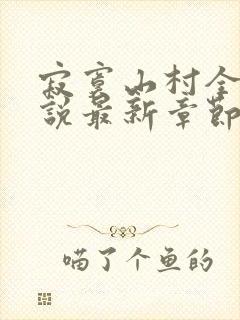 寂寞山村全
說最新章節
喵了个鱼的